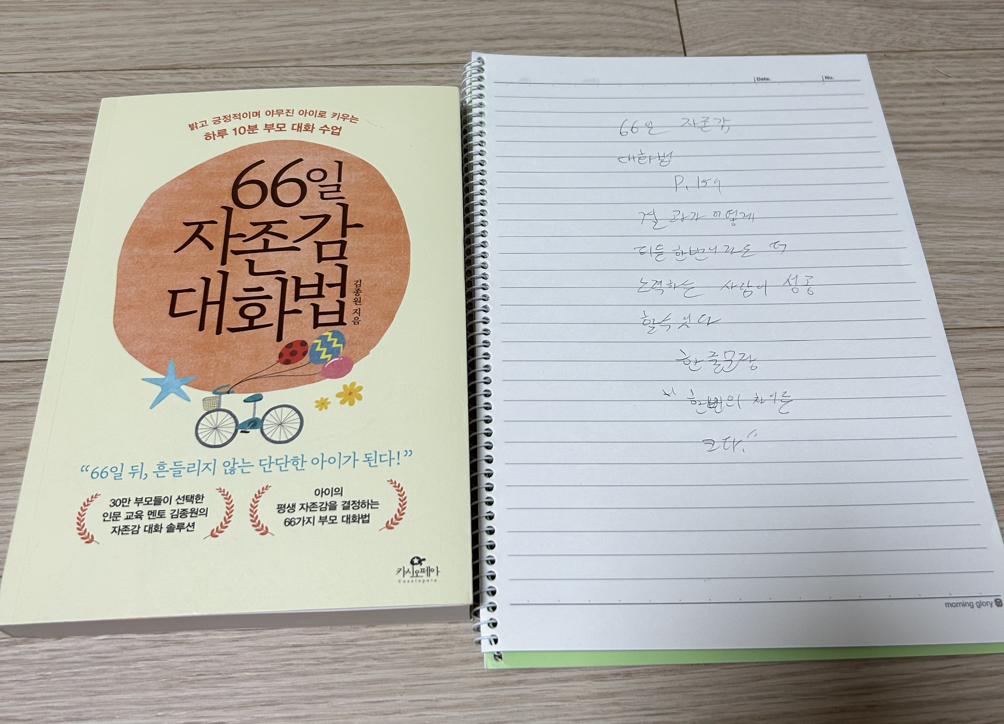 밝고 긍정적이며 야무진 아이로 키우는
하루 10분 부모 대화 수업
66일
자존감
대화법
김종원 지음
“66일 뒤, 흔들리지 않는 단단한 아이가 된다!”
30만 부모들이 선택한
인문 교육 멘토 김종원의
자존감 대화 솔루션
아이의
평생 자존감을 결정하는
66가지 부모 대화법
카시오페아
Cassiopeia
Date.
No.
66일 자존감
대화법
P. 159
결과가 어떻게
되든 한번이라도 더
노력하는 사람이 성공
할수있다
한 줄 문장
"한번의 차이는
크다."
morning glory